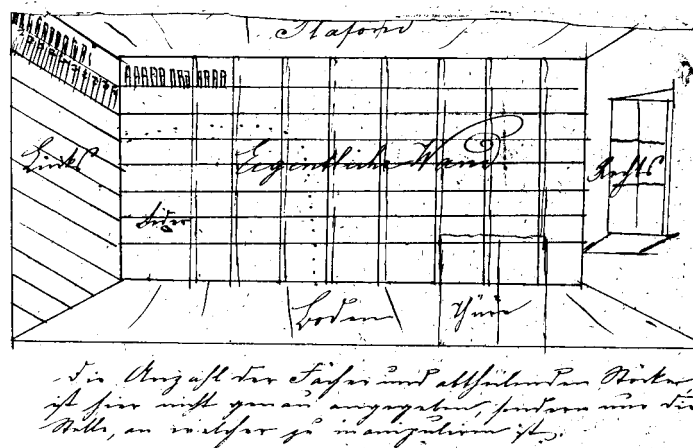 Plafond
Links
Eigentliche Wand
Rechts
Boden
Thüre
Die Anzahl der Fächer und abtheilenden Stöcke,
ist hier nicht genau angegeben, sondern nur die
Stelle, an welcher zu manipuliren ist.